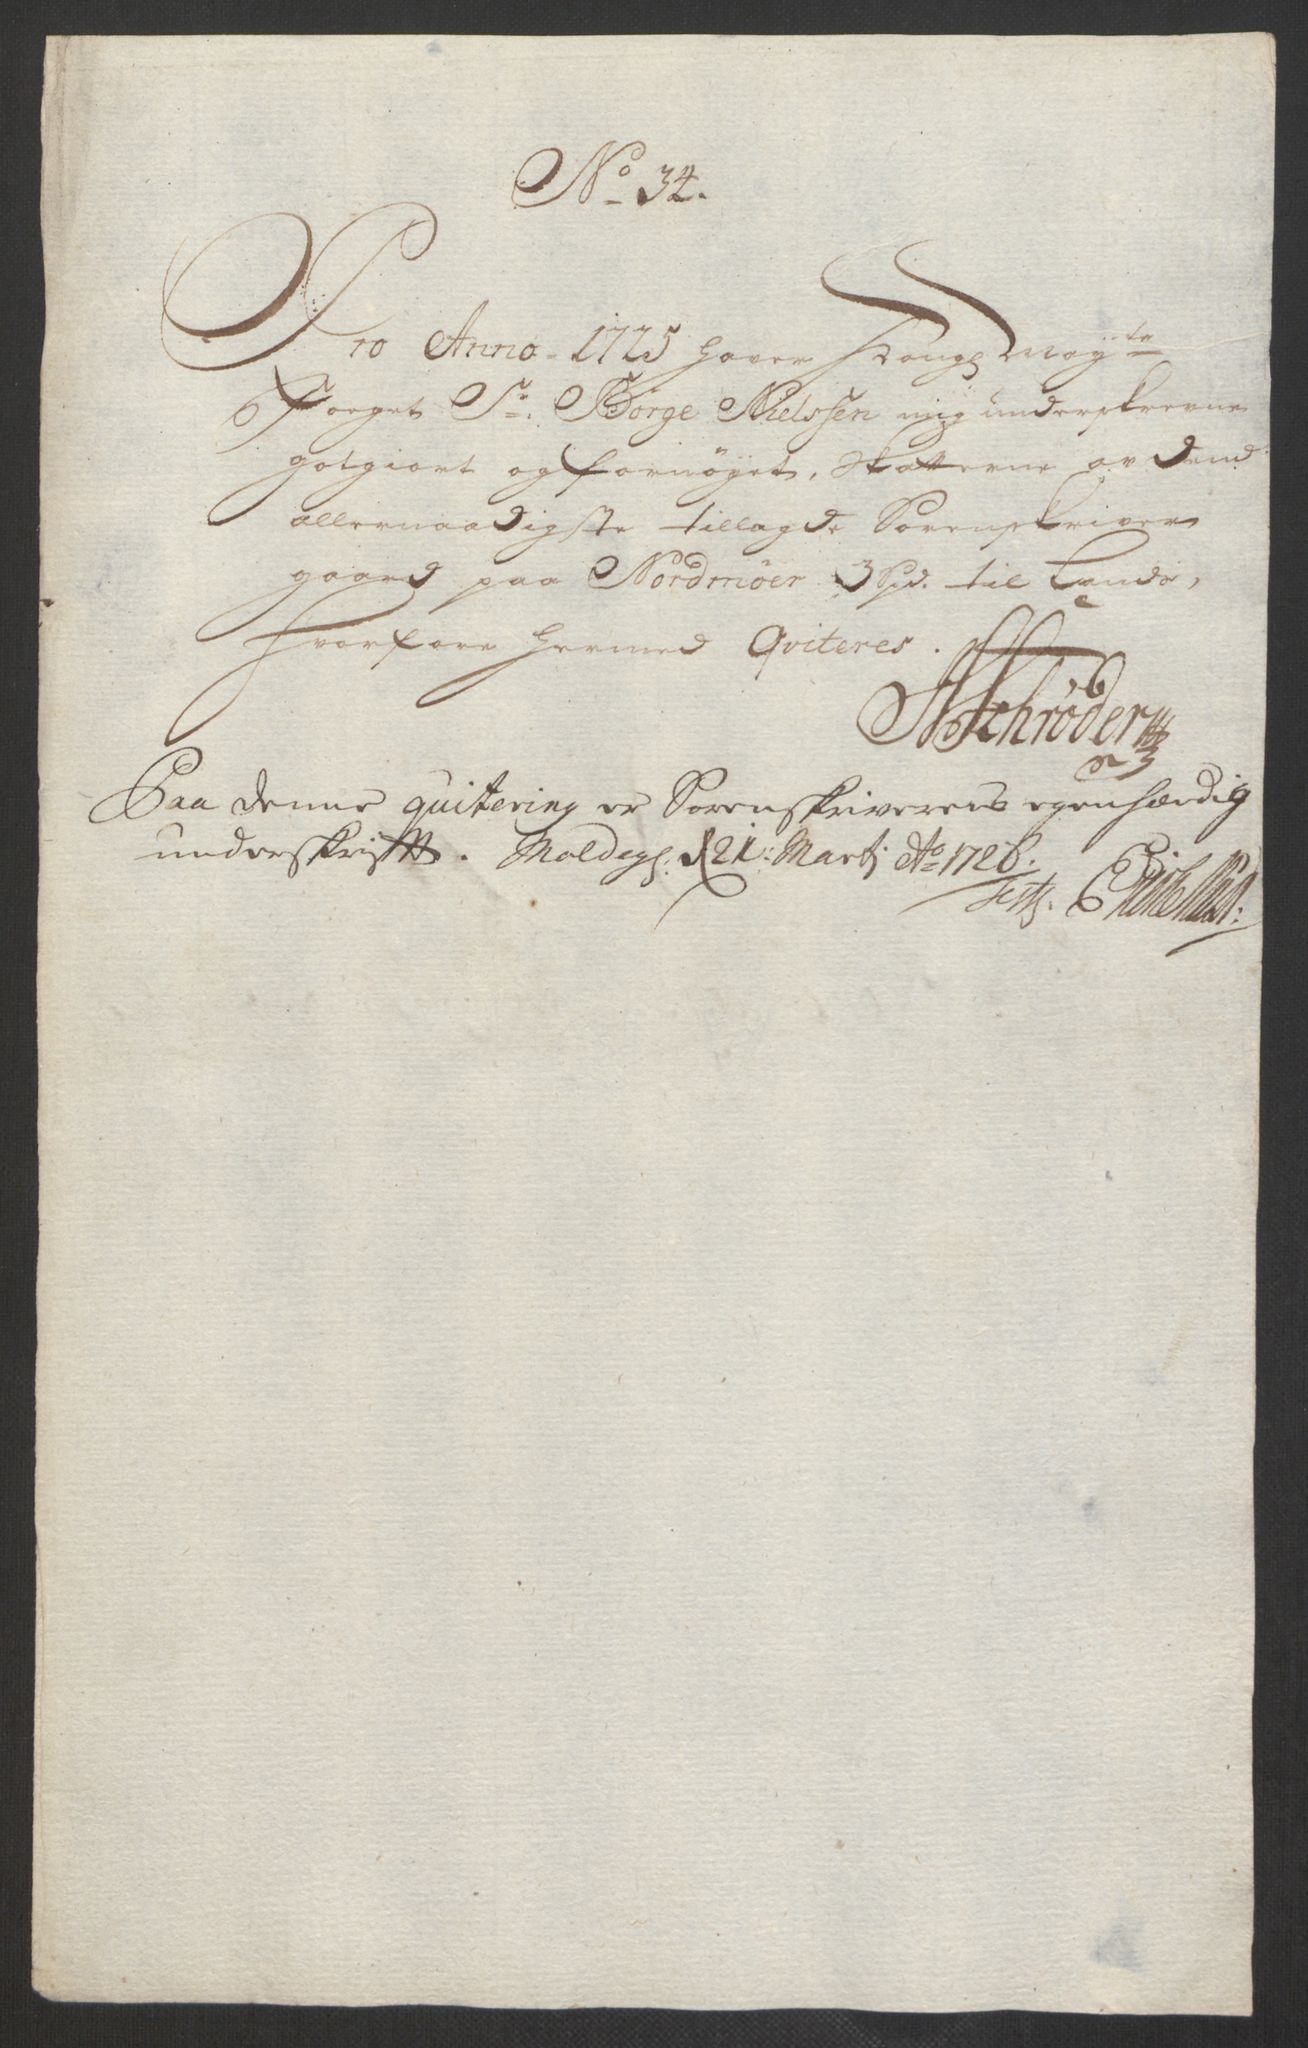 No 34.
Pro Anno 1725 haver Kongl Mayts
Fooget Sr. Børge Nielssen mig underskrevne
gotgiort og fornøyet, Skatterne av dend
allernaadigste tillagde Sorenskriver
gaard paa Nordmöer 3 Spd. til Lands,
hvorfore hermed Qviteres.
Schrøder
Paa denne quitering er Sorenskriverens egenhændig
underskrifft. Moldegl. d 21: Martj Ao 1726.
Test.